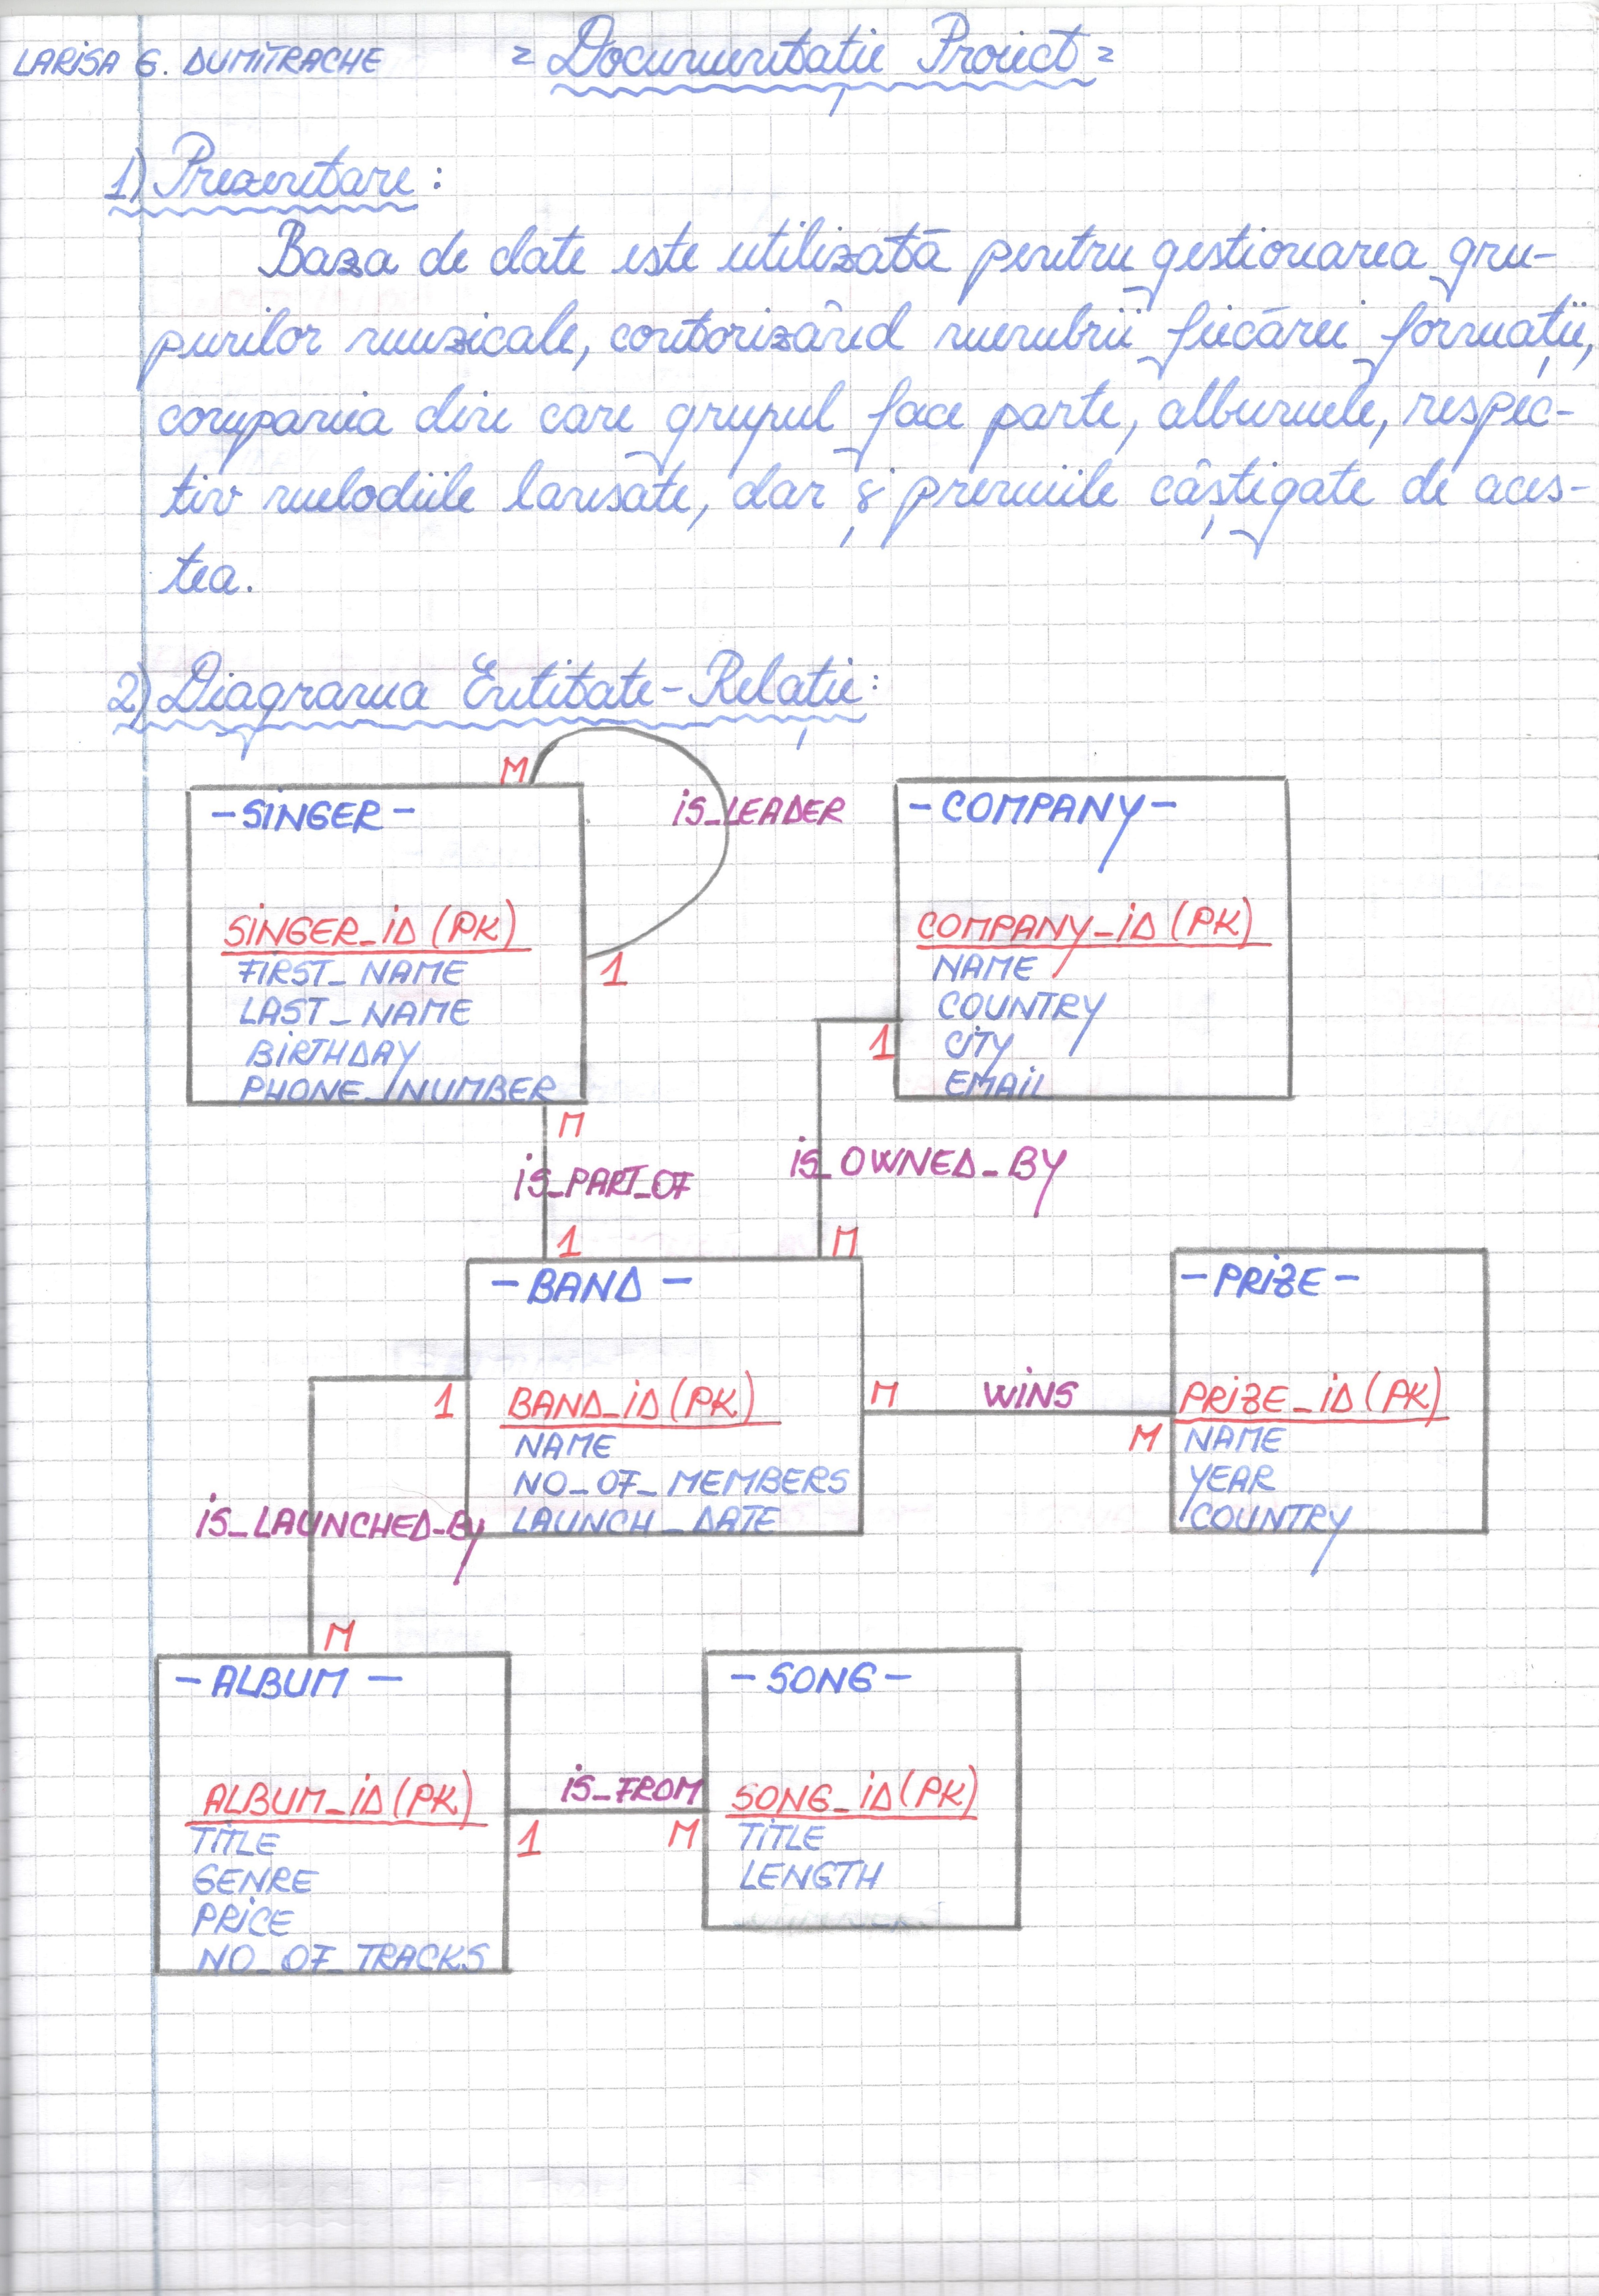 LARISA G. DUMITRACHE
= Documentație Proiect =
1) Prezentare:
Baza de date este utilizată pentru gestionarea gru-
purilor muzicale, contorizând membrii fiecărei formații,
compania din care grupul face parte, albumele, respec-
tiv melodiile lansate, dar și premiile câștigate de aces-
tea.
2) Diagrama Entitate-Relație:
M
IS_LEADER
1
- SINGER -
SINGER_ID (PK)
FIRST_NAME
LAST_NAME
BIRTHDAY
PHONE_NUMBER
- COMPANY -
COMPANY_ID (PK)
NAME
COUNTRY
CITY
EMAIL
1
M
IS_PART_OF
1
IS_OWNED_BY
M
- BAND -
BAND_ID (PK)
NAME
NO_OF_MEMBERS
LAUNCH_DATE
M
WINS
M
- PRIZE -
PRIZE_ID (PK)
NAME
YEAR
COUNTRY
1
IS_LAUNCHED_BY
M
- ALBUM -
ALBUM_ID (PK)
TITLE
GENRE
PRICE
NO_OF_TRACKS
1
IS_FROM
M
- SONG -
SONG_ID (PK)
TITLE
LENGTH